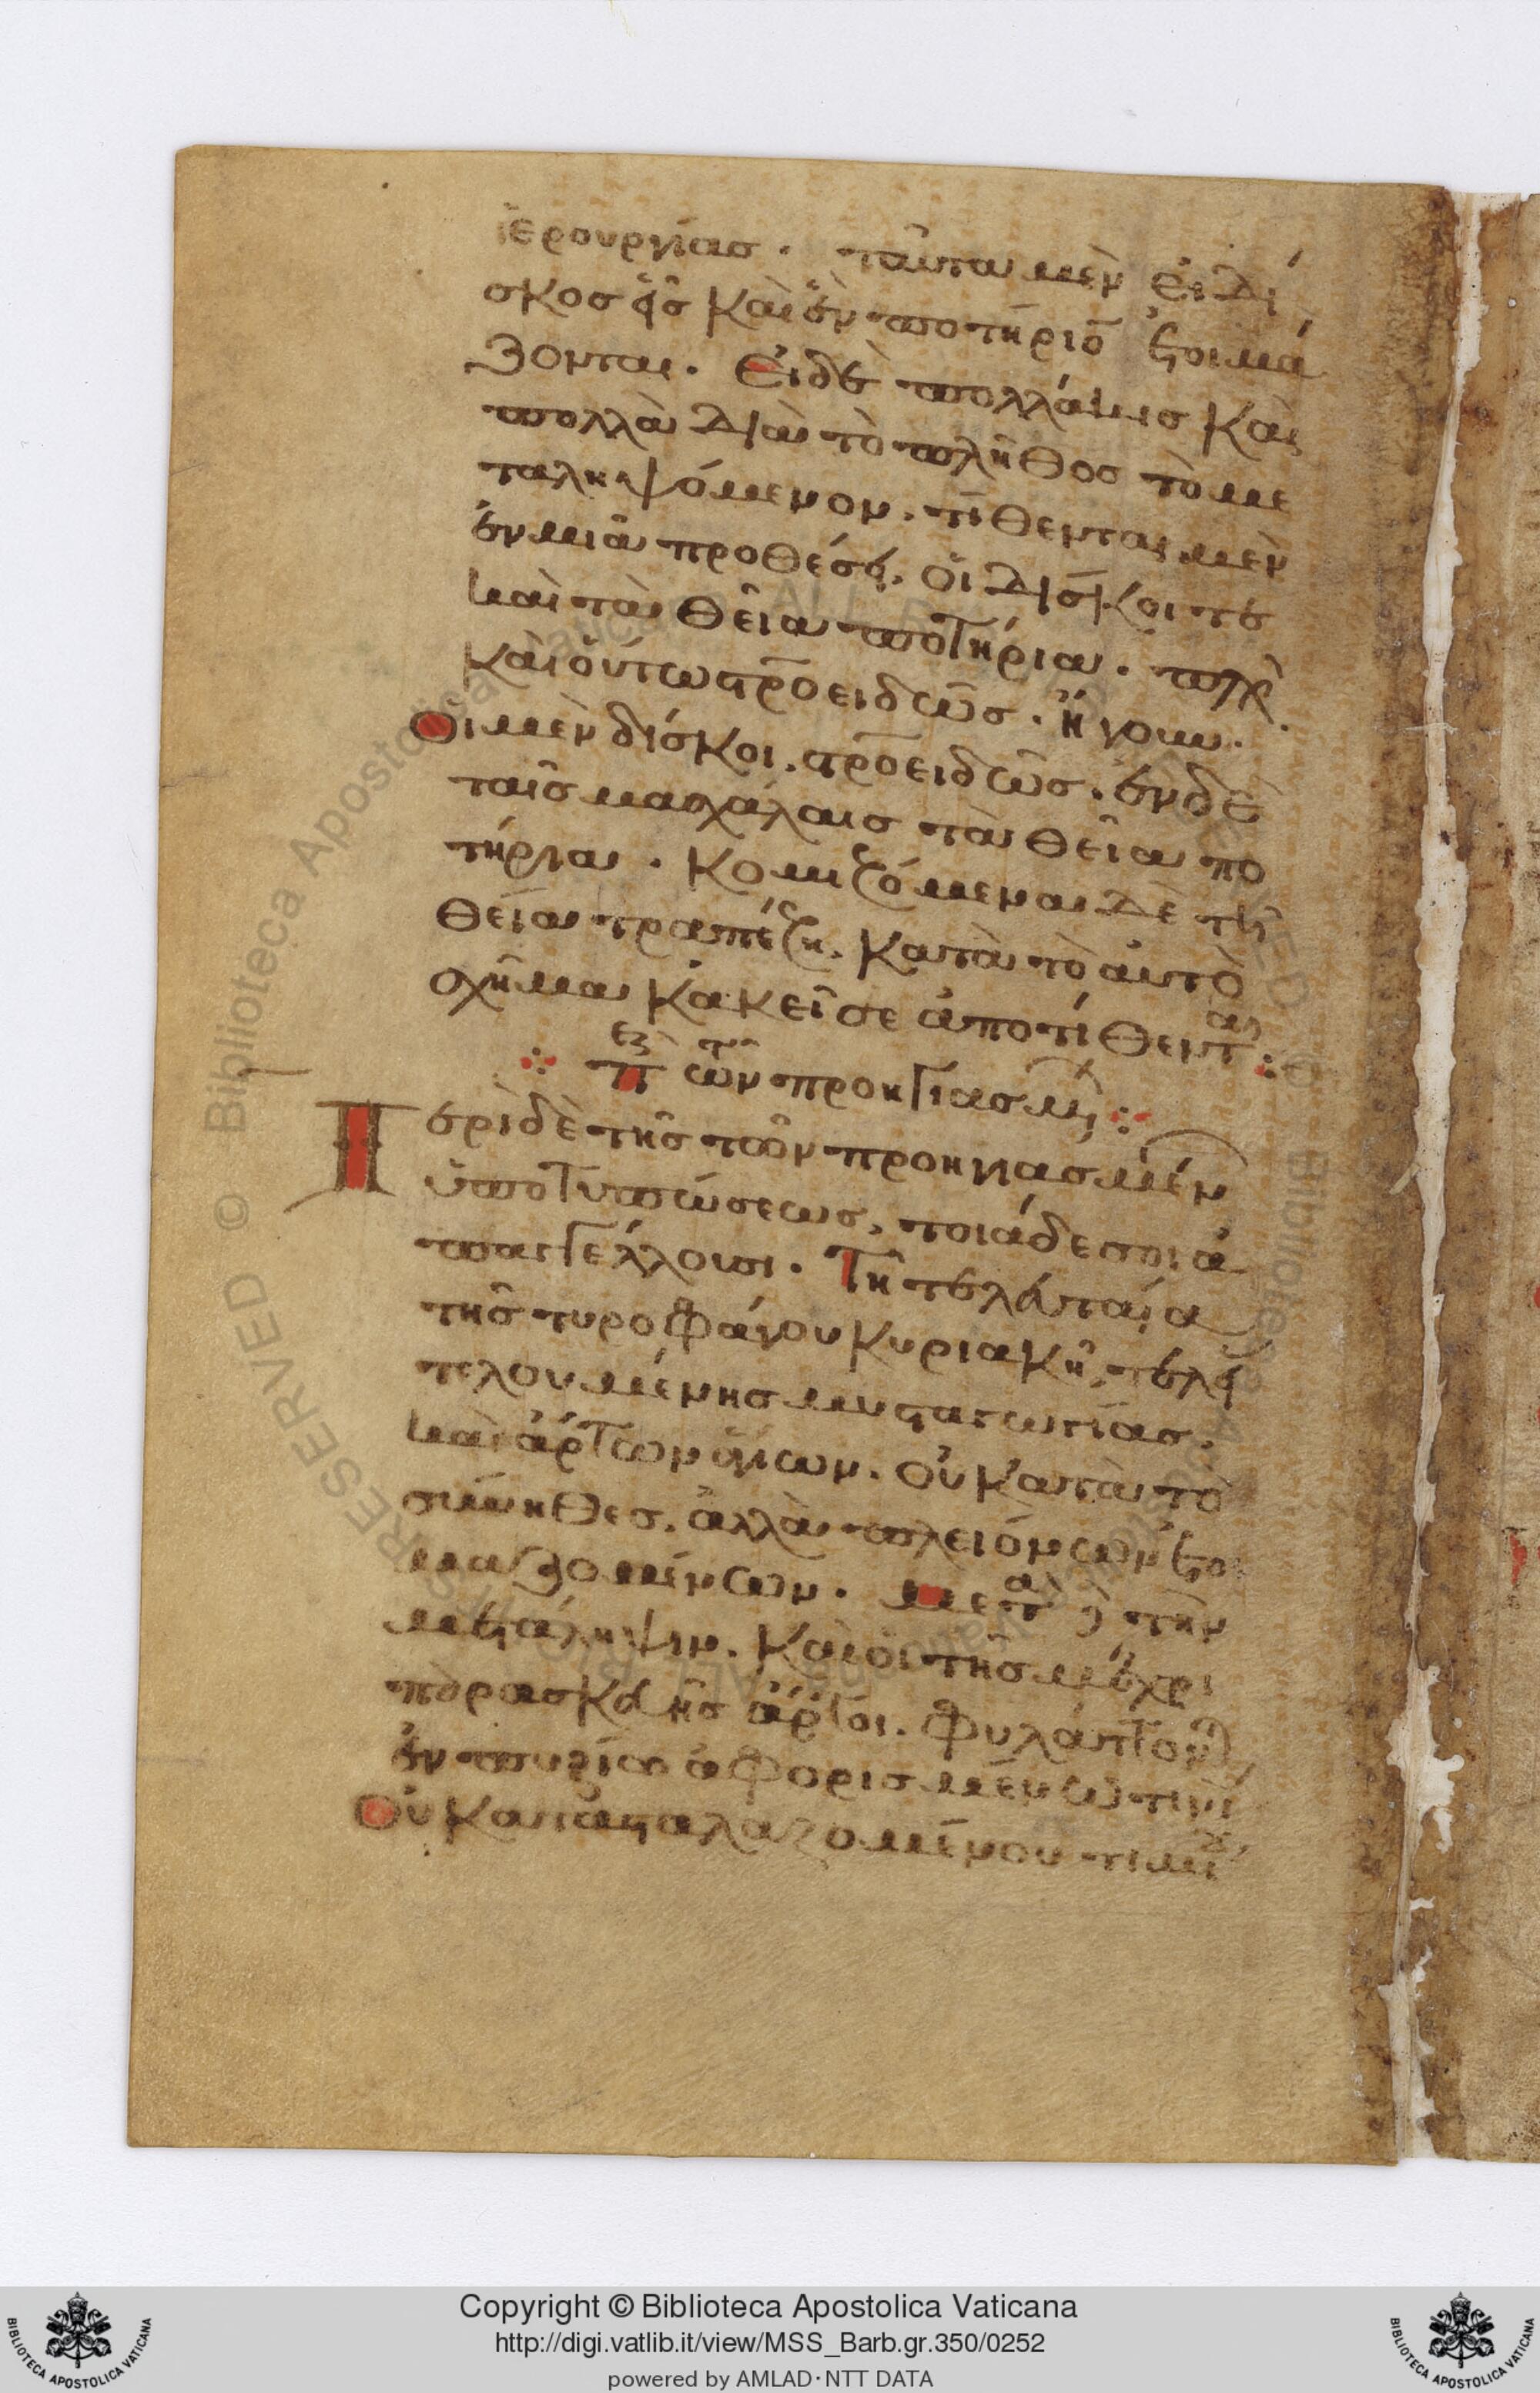 ἱερουργίας · ταῦτα μὲν εἰ δί
σκος εἷς καὶ ἓν ποτήριο ἑτοιμά
ζονται · Εἰ δὲ πολλάκις καὶ
πολλὰ διὰ τὸ πλῆθος τὸ με
ταληψόμενον, τίθενται μὲν
ἐν μιᾷ προθέσει, οἱ δίσκοι τε
καὶ τὰ θεῖα ποτήρια ·
καὶ οὕτω σροειδῶς · ἤγουν ·
Οἱ μὲν δίσκοι, σροειδῶς · ἐν δὲ
ταῖς μασχάλαις τὰ θεῖα πο
τήρια · κομιζόμενα δὲ τῇ
θεία τραπέζη, κατὰ τὸ αὐτὸ
σχῆμα κακεῖσε ἀποτίθεντ :
π τῶν προηγιασμ :
Περὶ δὲ τῆς τῶν προηγιασμέν
ὑποτυπώσεως, ποιάδε
παγγέλλουσι · Τῆ τελευταία
τῆς τυροφάγου κυριακῆ τελε
τελουμένης μυσταγωγίας,
καὶ ἄρτων ἁγίων · οὐ κατὰ τὸ
σύνηθες, ἀλλὰ πλειόνων ἑτοι
μαζομένων · μετ τὴν
μετάληψιν, καὶ οἱ τῆς μέχρι
παρασκευῆς ἄρτοι, φυλάττον
ἐν πυξίω ἀφορισμένω τινὶ
Οὐ κατασταλαζομένου τιμί
Copyright © Biblioteca Apostolica Vaticana
http://digi.vatlib.it/view/MSS_Barb.gr.350/0252
powered by AMLAD·NTT DATA
BIBLIOTECA APOSTOLICA VATICANA
BIBLIOTECA APOSTOLICA VATICANA